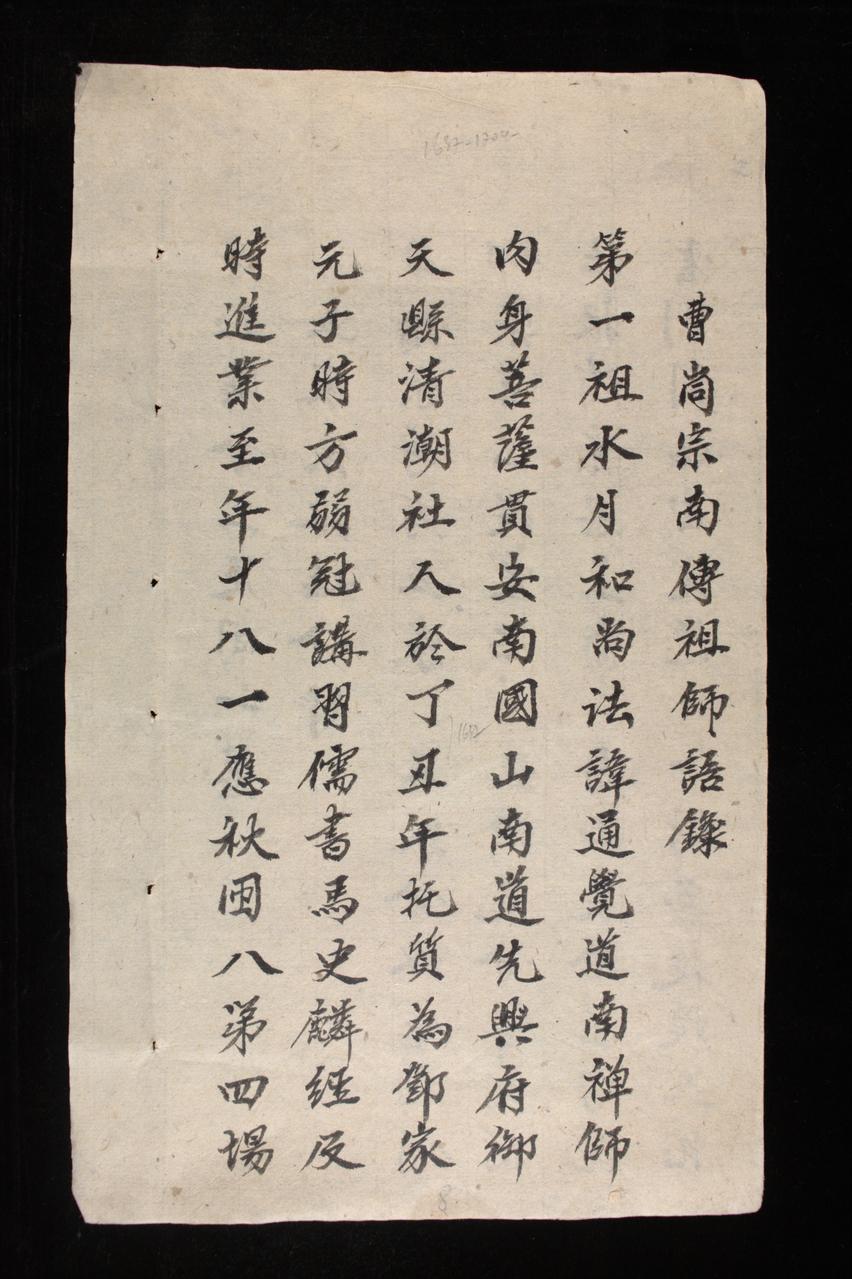 曹尚宗南傳祖師語錄
第一祖水月和尚法諱通覺道南禅師
肉身菩薩貫安南國山南道先興府御
天縣清潮社人於丁丑年托質為鄧家
元子時方弱冠講習儒書馬史麟經及
時進業至年十八一應秋围八第四場
1637-1704
1637
8